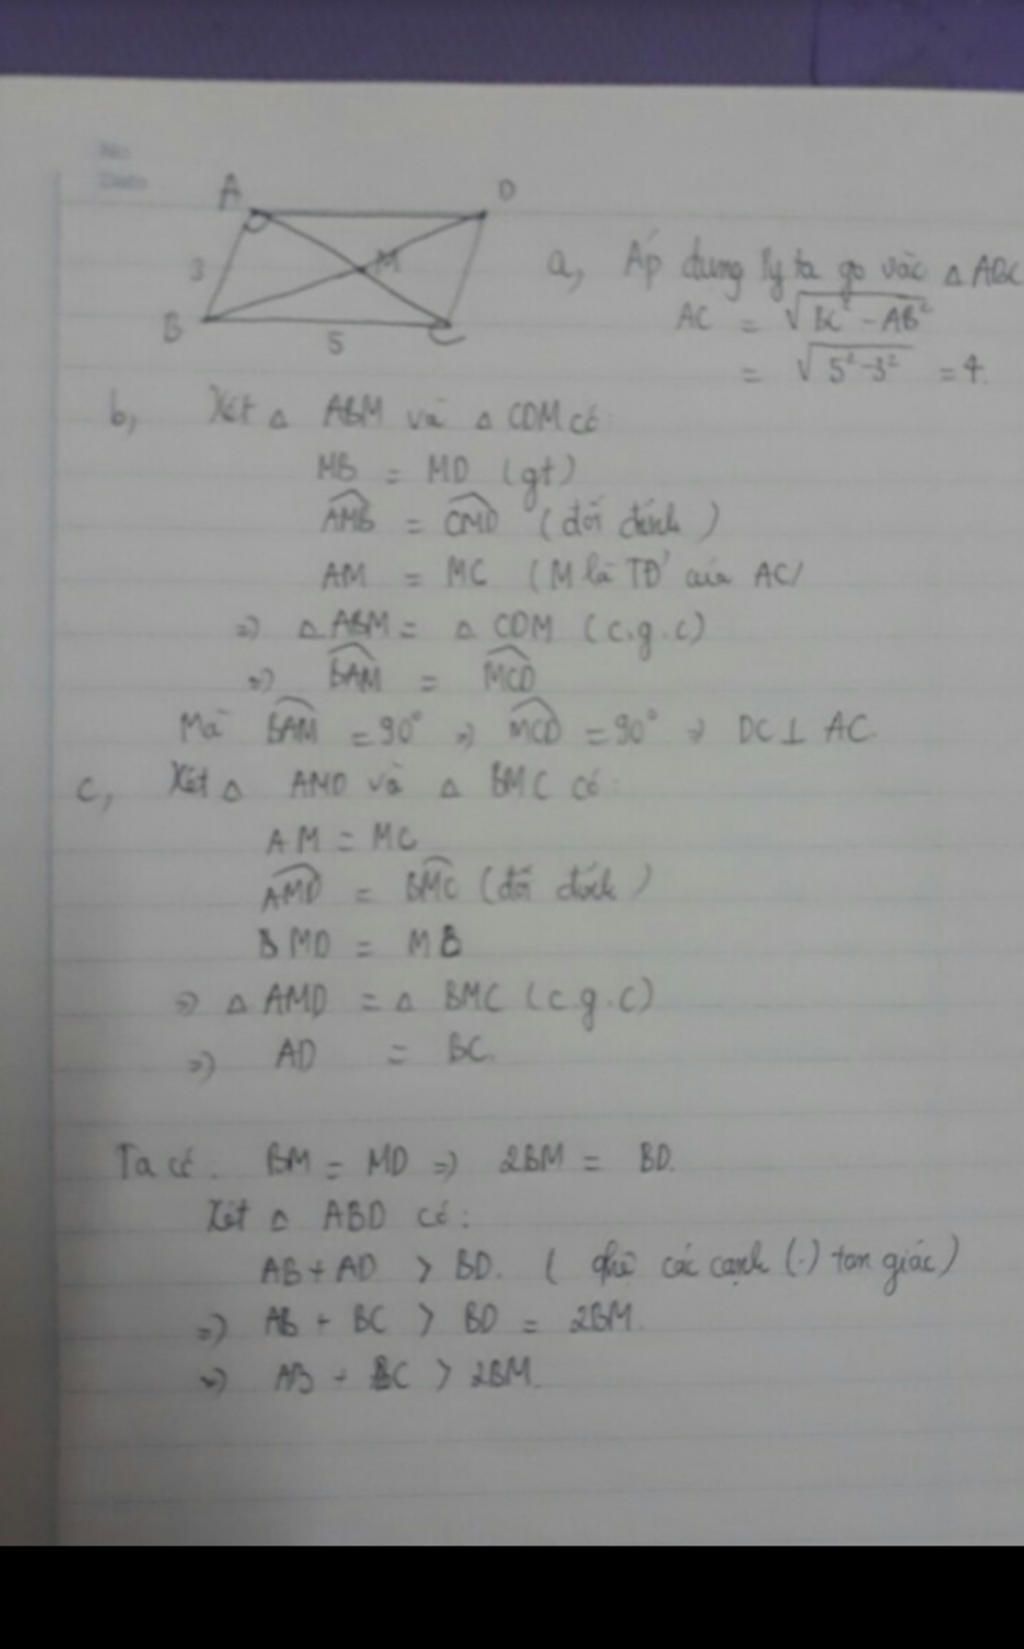 No.
Date
A
D
3
M
B
5
C
a, Áp dụng Py ta go vào △ ABC
AC = √BC² - AB²
= √5² - 3² = 4.
b, Xét △ ABM và △ CDM có:
MB = MD (gt)
AMB = CMD (đối đỉnh)
AM = MC (M là TĐ của AC)
=> △ ABM = △ CDM (c.g.c)
=> BAM = MCD
Mà BAM = 90° => MCD = 90° => DC ⊥ AC.
c, Xét △ AMD và △ BMC có:
AM = MC
AMD = BMC (đối đỉnh)
MD = MB
=> △ AMD = △ BMC (c.g.c)
=> AD = BC.
Ta có: BM = MD => 2BM = BD.
Xét △ ABD có:
AB + AD > BD. ( các cạnh (.) tam giác)
=> AB + BC > BD = 2BM.
=> AB + BC > 2BM.